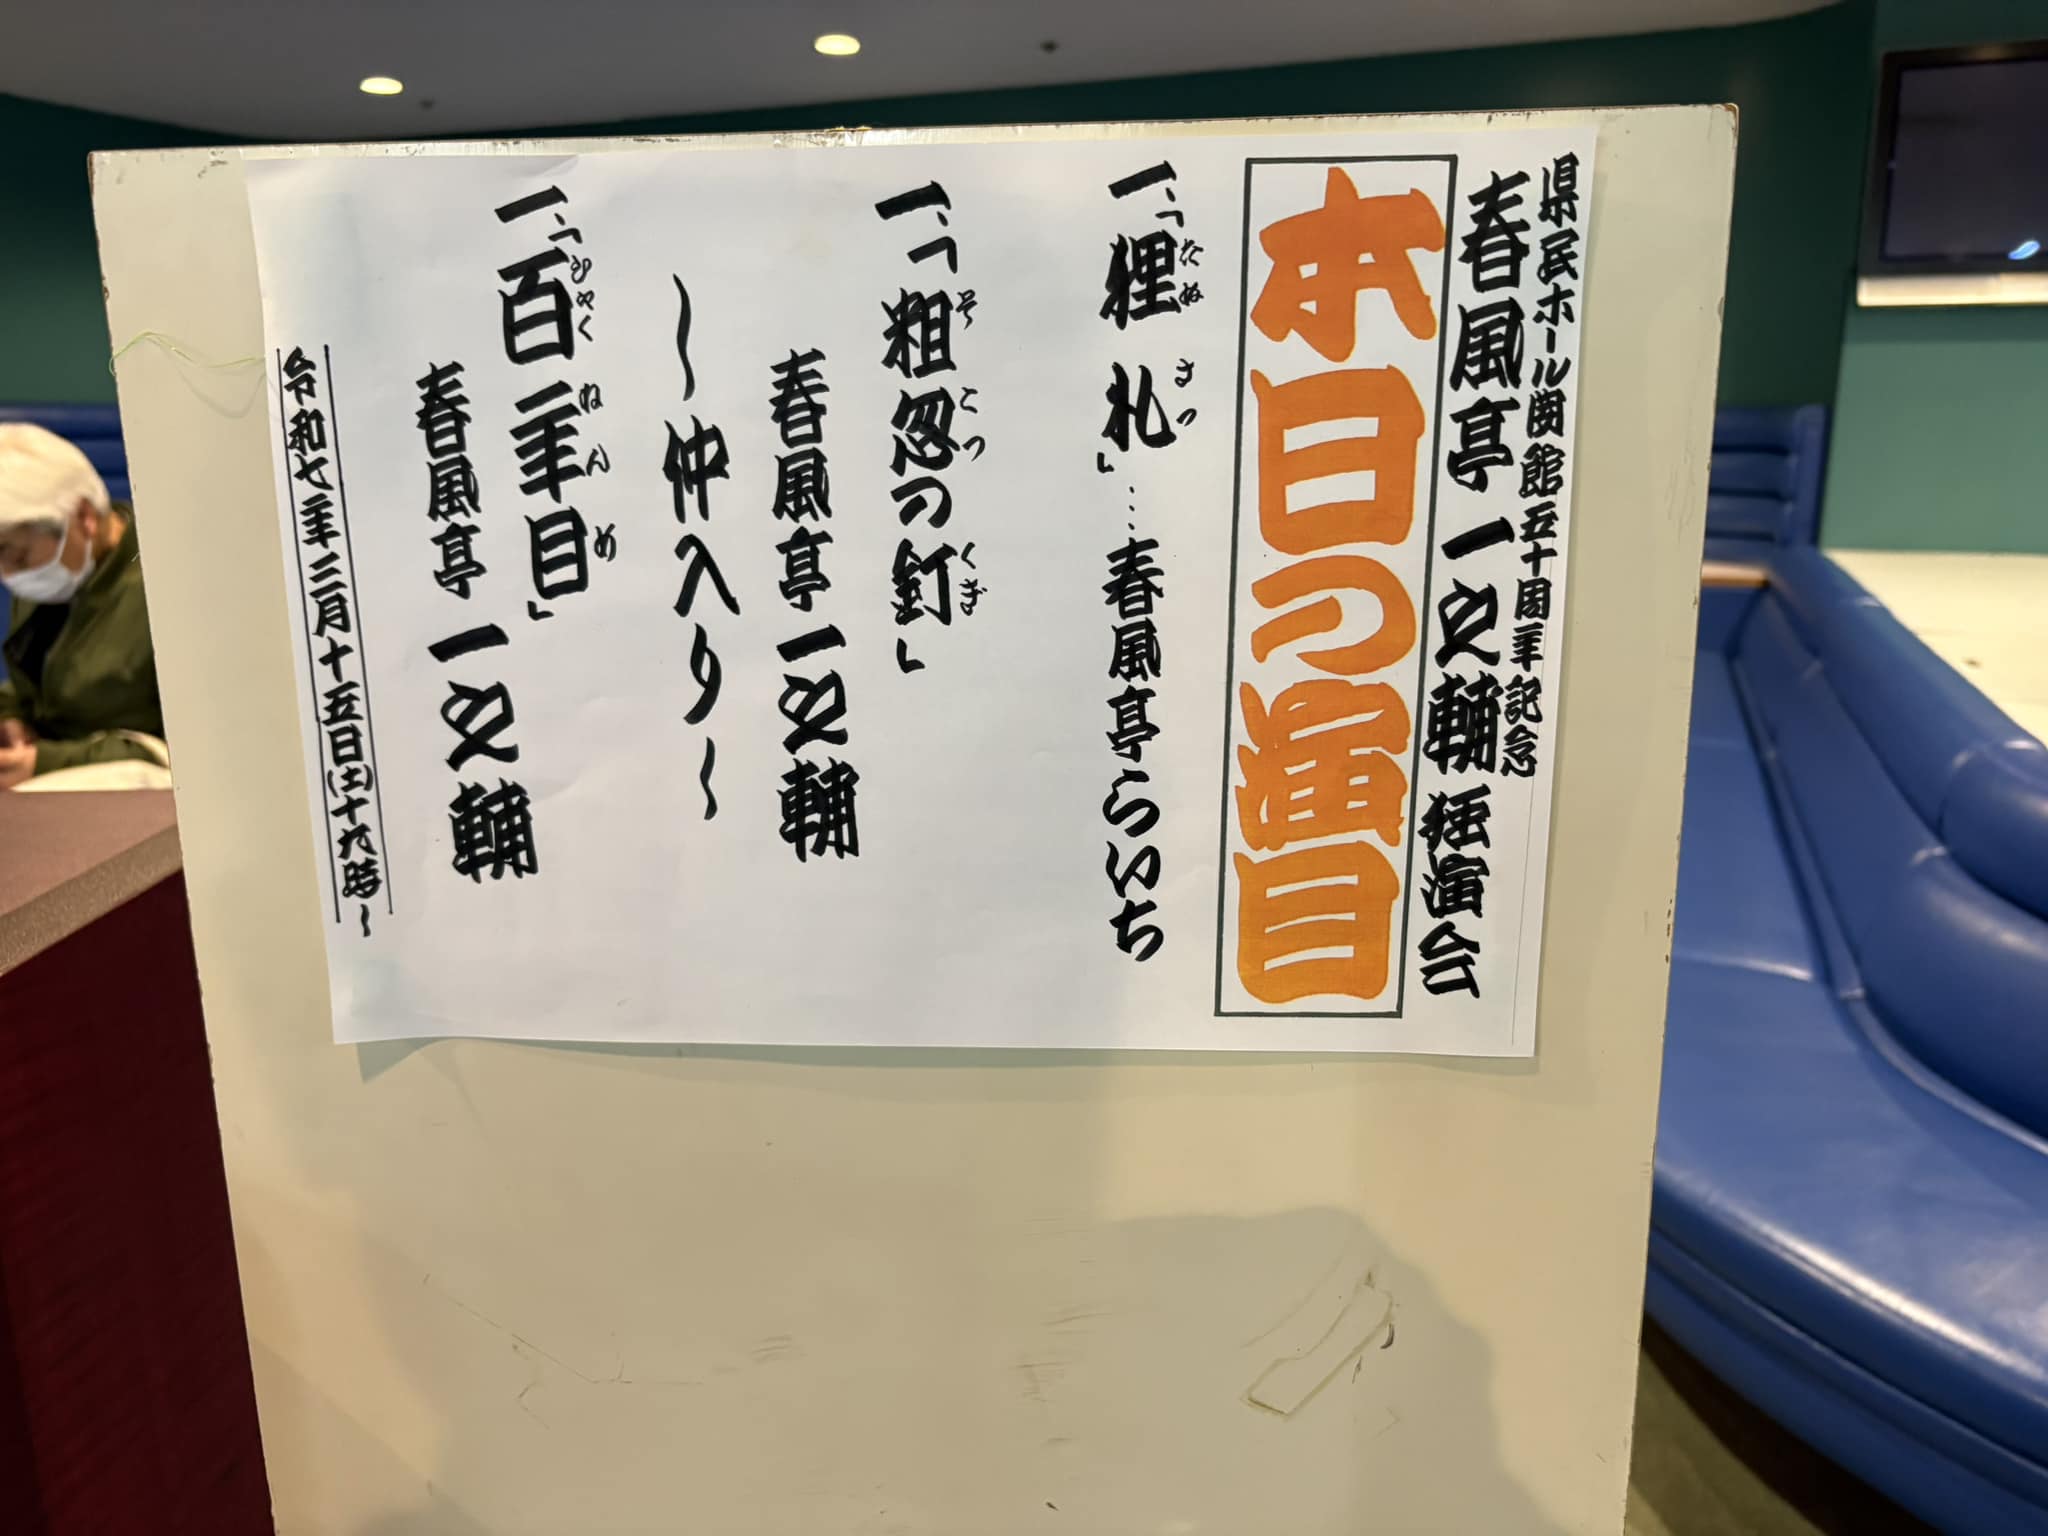 県民ホール開館五十周年記念
春風亭一之輔 独演会
本日の演目
一、「狸札」…春風亭らいち
たぬ さつ
一、「粗忽の釘」
そ こつ くぎ
春風亭 一之輔
〜仲入り〜
一、「百年目」
ひゃく ねん め
春風亭 一之輔
令和七年三月十五日(土)十六時〜